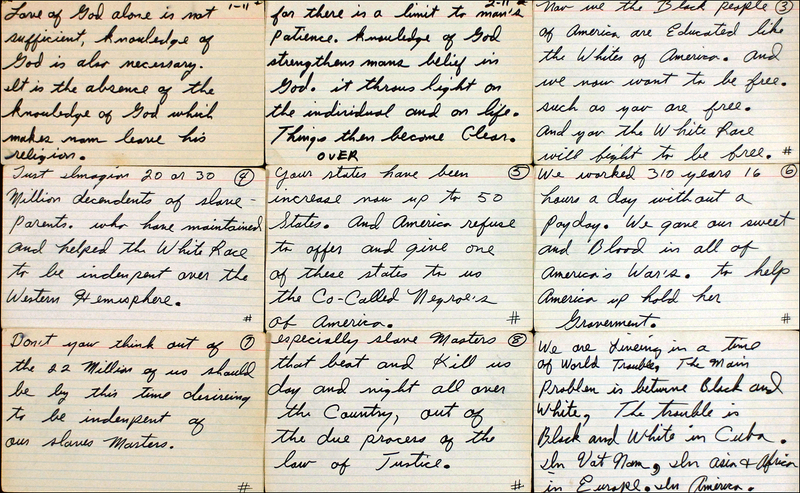 1-11
Love of God alone is not
sufficient, knowledge of
God is also necessary.
It is the absence of the
knowledge of God which
makes nam leave his
religion.
2-11
for there is a limit to man's
Patience. knowledge of God
strengthens mans belief in
God. it throws light on
the individual and on life.
Things then become Clear.
OVER
Now we the Black people (3)
of America are Educated like
the Whites of America. And
we now want to be free.
such as you are free.
And you the White Race
will bight to be free. #
Just Imagion 20 or 30 (4)
Million decendents of slave-
Parents. who have maintained
and helped the White Race
to be indenpent over the
Western Hemisphere.
#
Your states have been (5)
increase now up to 50
States. And America refuse
to offer and give one
of these states to us
the Co-Called Negroe's
of America. #
We worked 310 years 16 (6)
hours a day without a
Payday. We gave our sweet
and Blood in all of
America's War's. to help
America up hold her
Graverment. #
Don't you think out of (7)
the 22 Million of us should
be by this time desireing
to be indenpent of
our slaves Masters.
#
especially slave Masters (8)
that beat and Kill us
day and night all over
the Country, out of
the due process of the
law of Justice.
#
We are Liveing in a time
of World Trouble, The Main
Problem is betwne Black and
White, The trouble is
Black and White in Cuba.
In Vat Nam, In Asia & Africa
in Europe. In America.